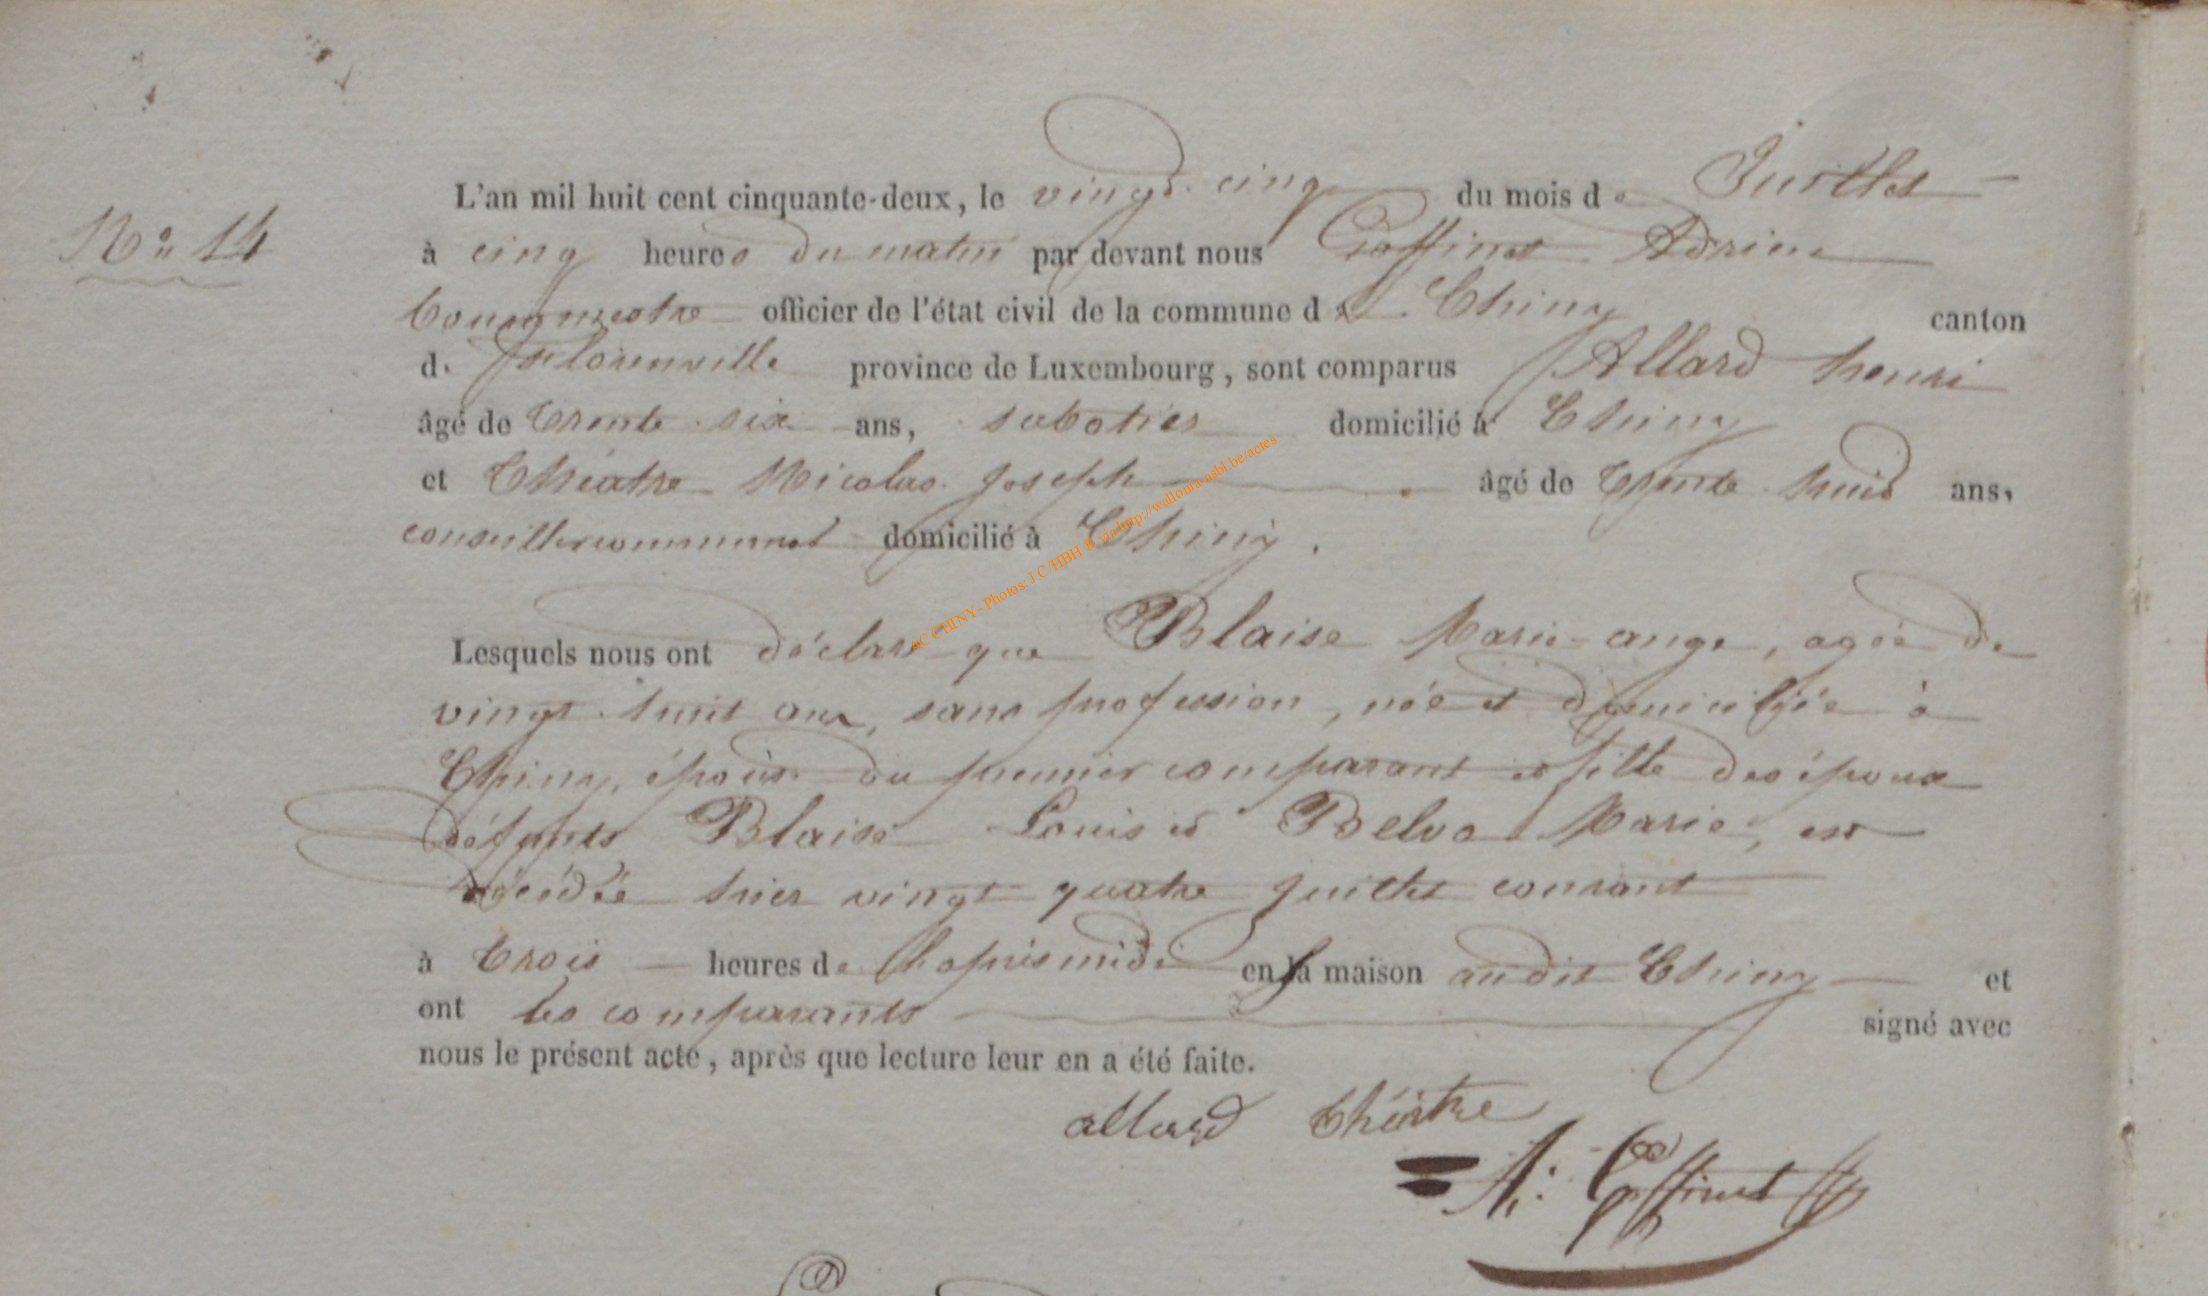 N° 14
L'an mil huit cent cinquante-deux, le vingt cinq du mois de Juillet
à cinq heures du matin par devant nous Goffinet Adrien
bourgmestre officier de l'état civil de la commune de Chiny canton
de Florenville province de Luxembourg, sont comparus Allard henri
âgé de trente six ans, sabotier domicilié à Chiny
et Théatre Nicolas Joseph âgé de trente huit ans,
conseiller communal domicilié à Chiny.
AC CHINY - Photos: J C/HBH © via http://wallonia-asbl.be/actes
Lesquels nous ont déclaré que Blaise Marie ange, agée de
vingt huit ans, sans profession, née et domiciliée à
Chiny, épouse du premier comparant et fille des époux
défunts Blaise Louis et Belva Marie, est
décédée hier vingt quatre juillet courant
à trois heures de l'aprèsmidi en la maison audit Chiny et
ont les comparants signé avec
nous le présent acte, après que lecture leur en a été faite.
allard Théatre
A: Goffinet